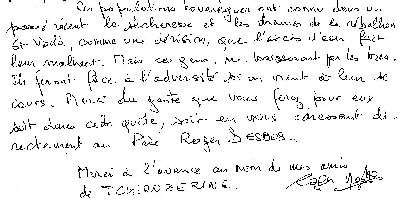 Ces populations touaregues ont connu dans un
passé récent la sécheresse et les drames de la rébellion
et voilà, comme une dérision, que l'excès d'eau fait
leur malheur. Mais ces gens ne baisseront pas les bras.
Ils feront face à l'adversité si on vient à leur se-
cours. Merci du geste que vous ferez pour eux
soit dans cette quête, soit en vous adressant di-
rectement au Père Roger DESBOS.
Merci à l'avance au nom de mes amis
de TCHIROZERINE.